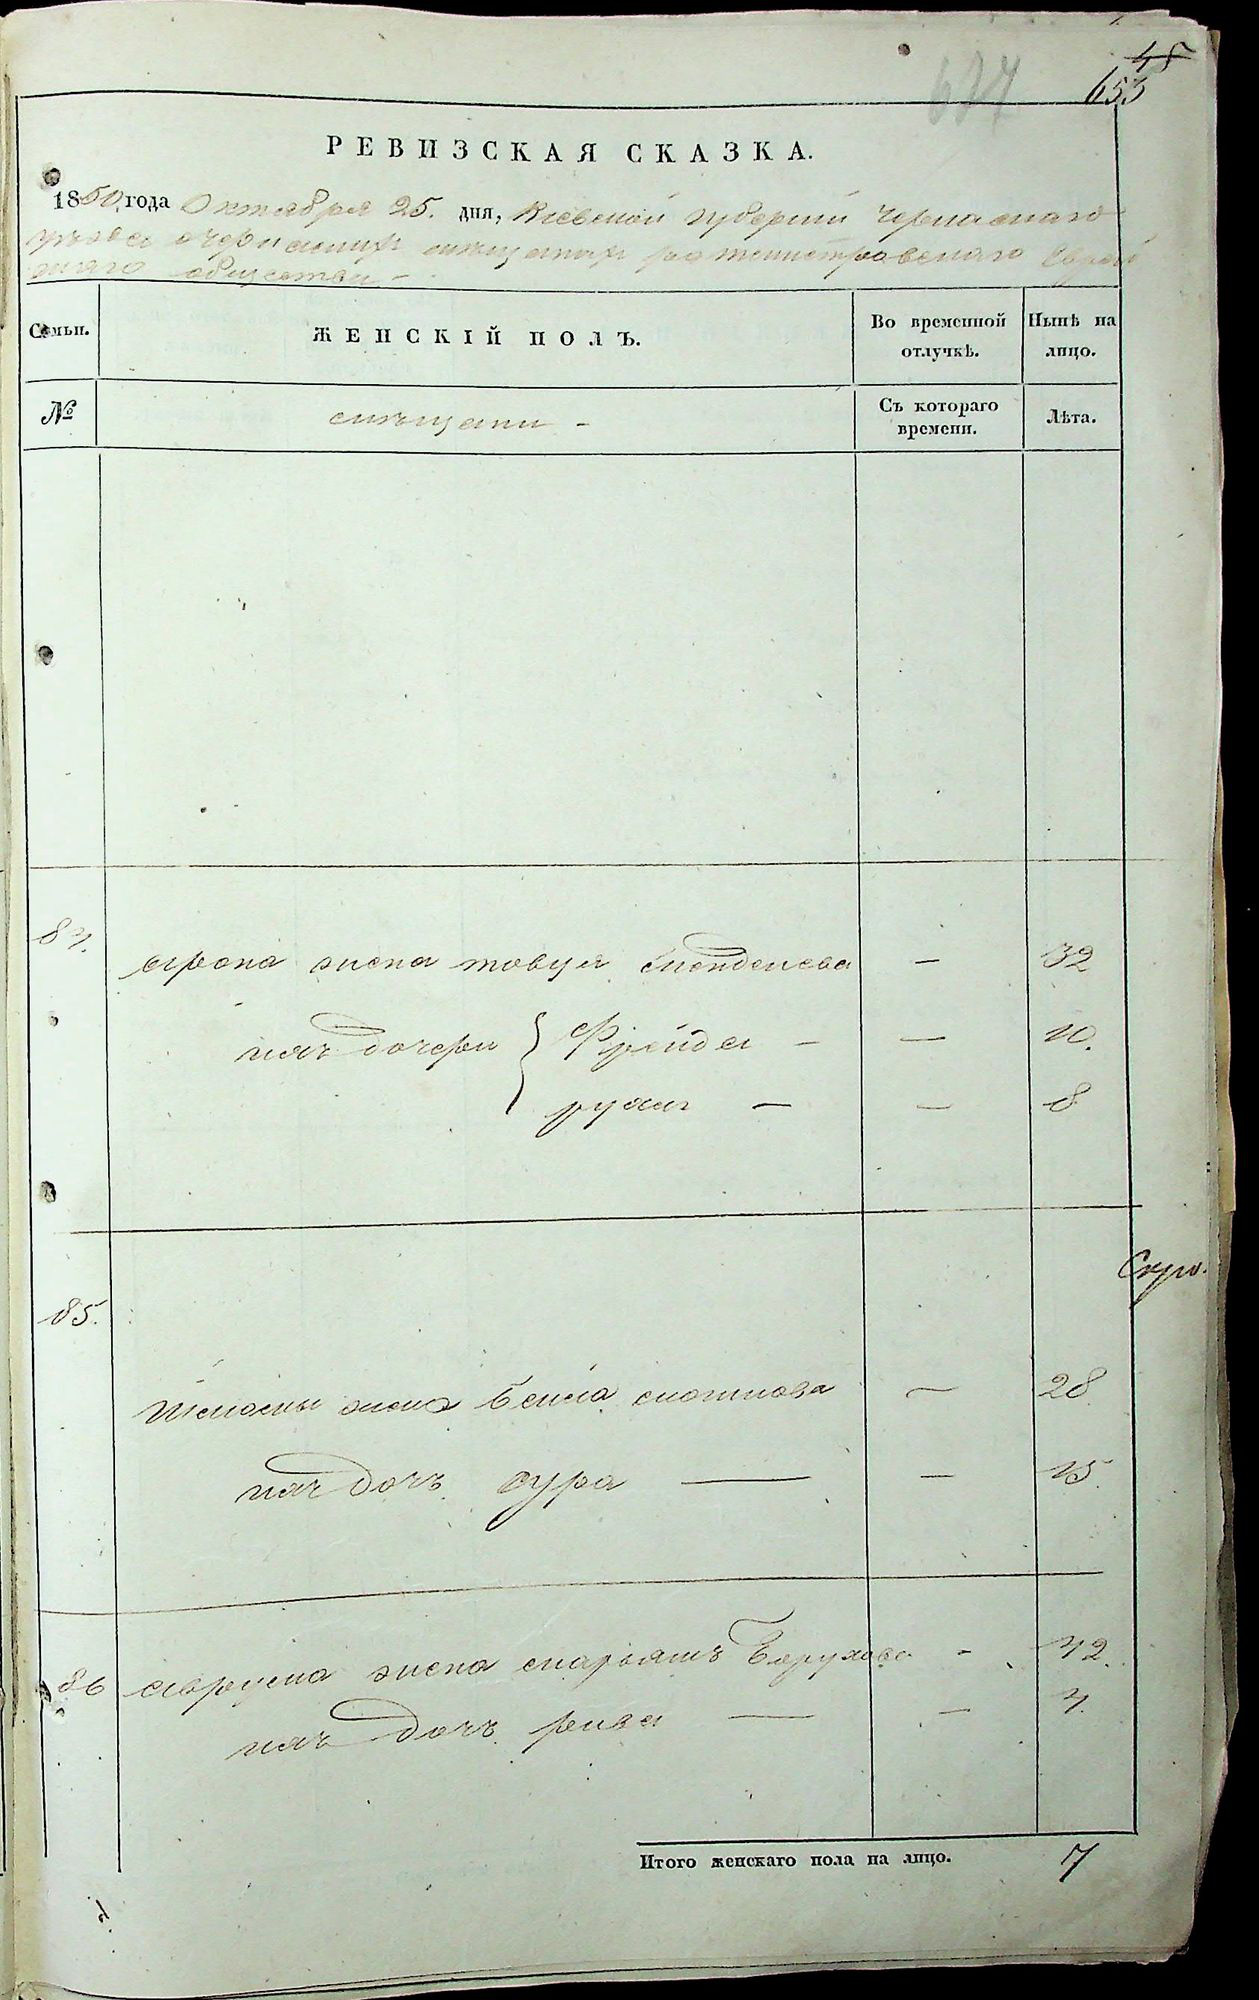 48
653
РЕВИЗСКАЯ СКАЗКА.
1850 года Октября 25. дня, Киевской губернии Черкаскаго
уезда о мещанах ротмистровскаго Еврей
скаго общества -
Семьи. ЖЕНСКІЙ ПОЛЪ. Во временной отлучкѣ. Нынѣ на лицо.
№ мещани - Съ котораго времени. Лѣта.
84.
Арона жена товуя Менделева — 32
ихъ дочери { Фрейда - — 10.
рухля — — 8
Скрѣ.
85.
Шеломы жена Бейла мошкова — 28
ихъ дочь сура — — 15.
86 Аврума жена марьямъ Борухова - 42.
ихъ дочь рива — — 4.
Итого женскаго пола на лицо. 7